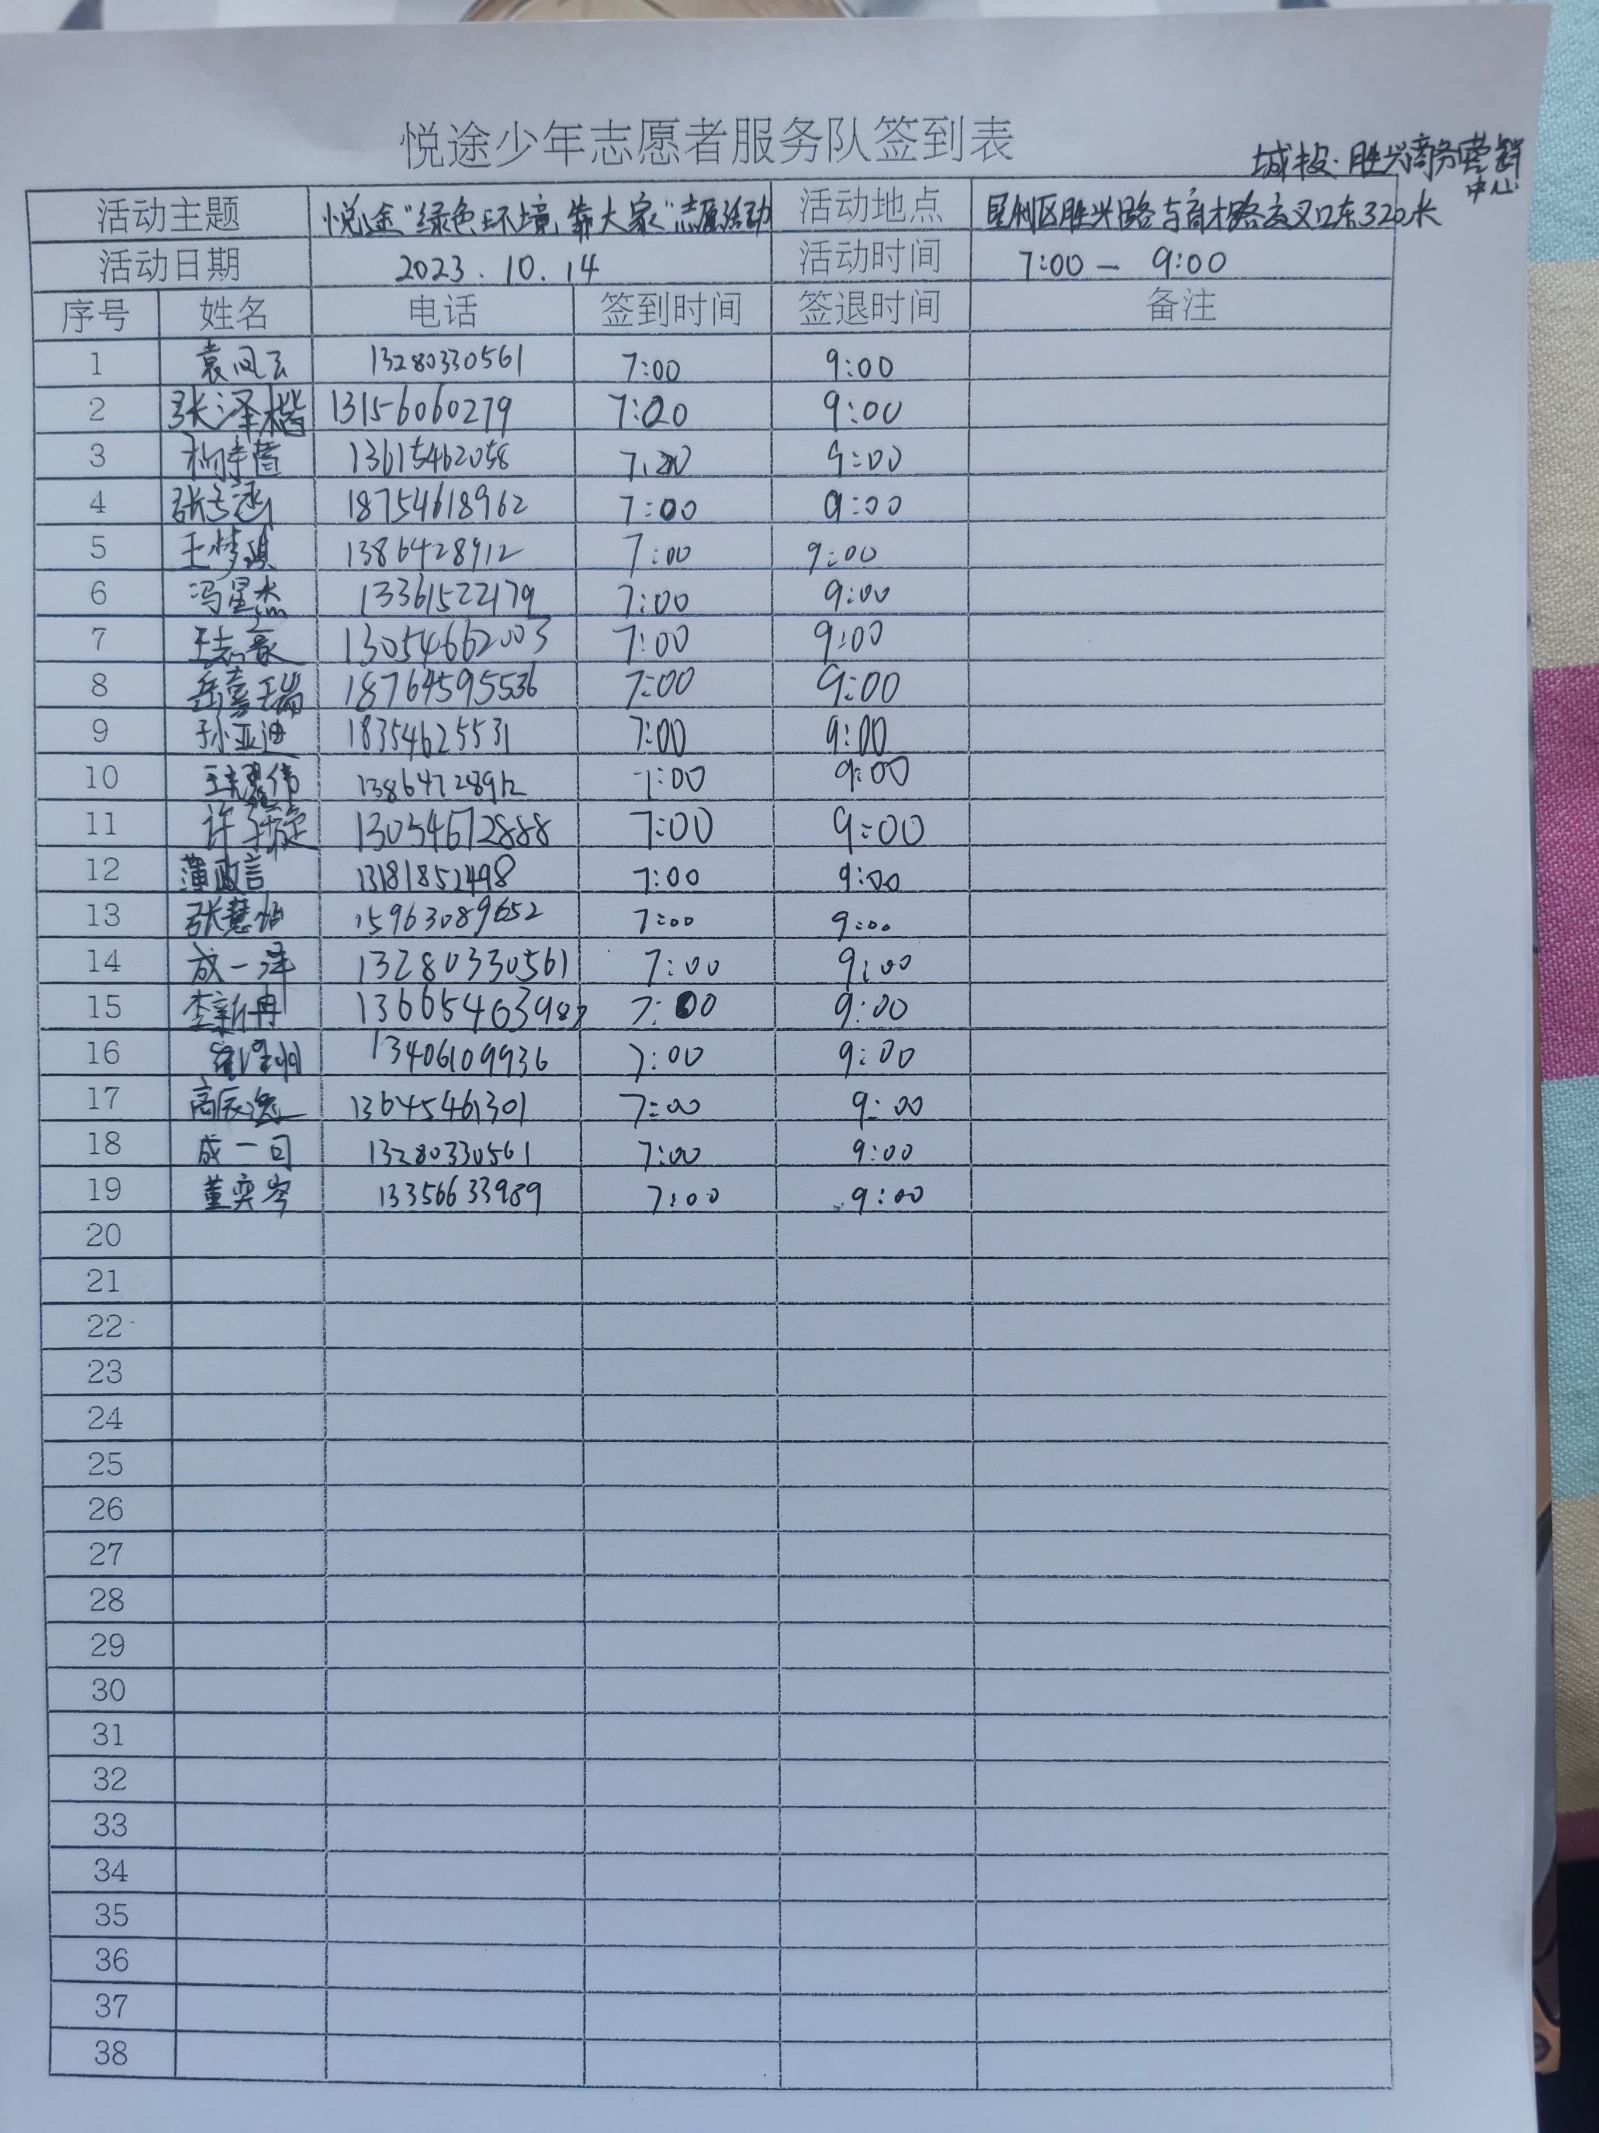 悦途少年志愿者服务队签到表
城投·胜兴商务营销中心
活动主题 悦途"绿色环境,靠大家"志愿活动 活动地点 垦利区胜兴路与育才路交叉口东320米
活动日期 2023.10.14 活动时间 7:00 — 9:00
序号 姓名 电话 签到时间 签退时间 备注
1 袁凤云 13280330561 7:00 9:00
2 张泽楷 13156060279 7:00 9:00
3 13615462058 7:00 9:00
4 18754618962 7:00 9:00
5 王梦琪 1386428912 7:00 9:00
6 冯星杰 13361522179 7:00 9:00
7 王志豪 13054662003 7:00 9:00
8 岳喜瑞 18764595536 7:00 9:00
9 孙亚迪 18354625531 7:00 9:00
10 13864728912 7:00 9:00
11 许 13054672888 7:00 9:00
12 蒲政言 13181851498 7:00 9:00
13 张慧怡 15963089652 7:00 9:00
14 成一泽 13280330561 7:00 9:00
15 李新冉 13665463987 7:00 9:00
16 13406109936 7:00 9:00
17 高辰逸 13645461301 7:00 9:00
18 成一司 13280330561 7:00 9:00
19 董奕岑 13356633989 7:00 9:00
20
21
22
23
24
25
26
27
28
29
30
31
32
33
34
35
36
37
38